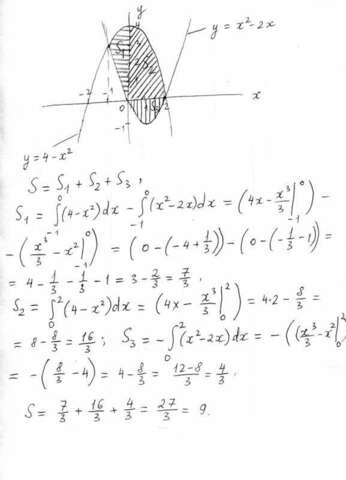 y
y = x² - 2x
4
3
2
1
S₁
S₂
S₃
-2
-1
0
1
2
x
-1
y = 4 - x²
S = S₁ + S₂ + S₃,
S₁ = ∫₋₁⁰ (4-x²)dx - ∫₋₁⁰ (x²-2x)dx = (4x - x³/3 |₋₁⁰) -
- (x³/3 - x² |₋₁⁰) = (0 - (-4 + 1/3)) - (0 - (-1/3 - 1)) =
= 4 - 1/3 - 1/3 - 1 = 3 - 2/3 = 7/3,
S₂ = ∫₀² (4-x²)dx = (4x - x³/3 |₀²) = 4·2 - 8/3 =
= 8 - 8/3 = 16/3; S₃ = -∫₀² (x²-2x)dx = -((x³/3 - x² |₀²
= -(8/3 - 4) = 4 - 8/3 = (12-8)/3 = 4/3.
S = 7/3 + 16/3 + 4/3 = 27/3 = 9.